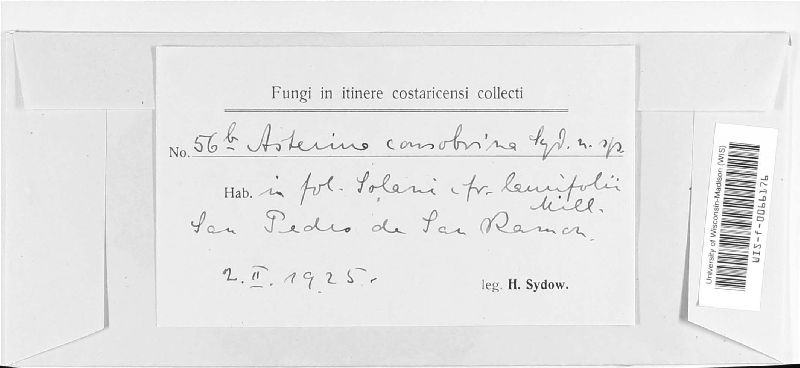 Fungi in itinere costaricensi collecti
No. 56b Asterina consobrina Syd. n. sp.
Hab. in fol. Solani cfr. lanifolii
Mill.
San Pedro de San Ramon.
2. II. 1925.
leg. H. Sydow.
University of Wisconsin-Madison (WIS)
WIS-f-0066176